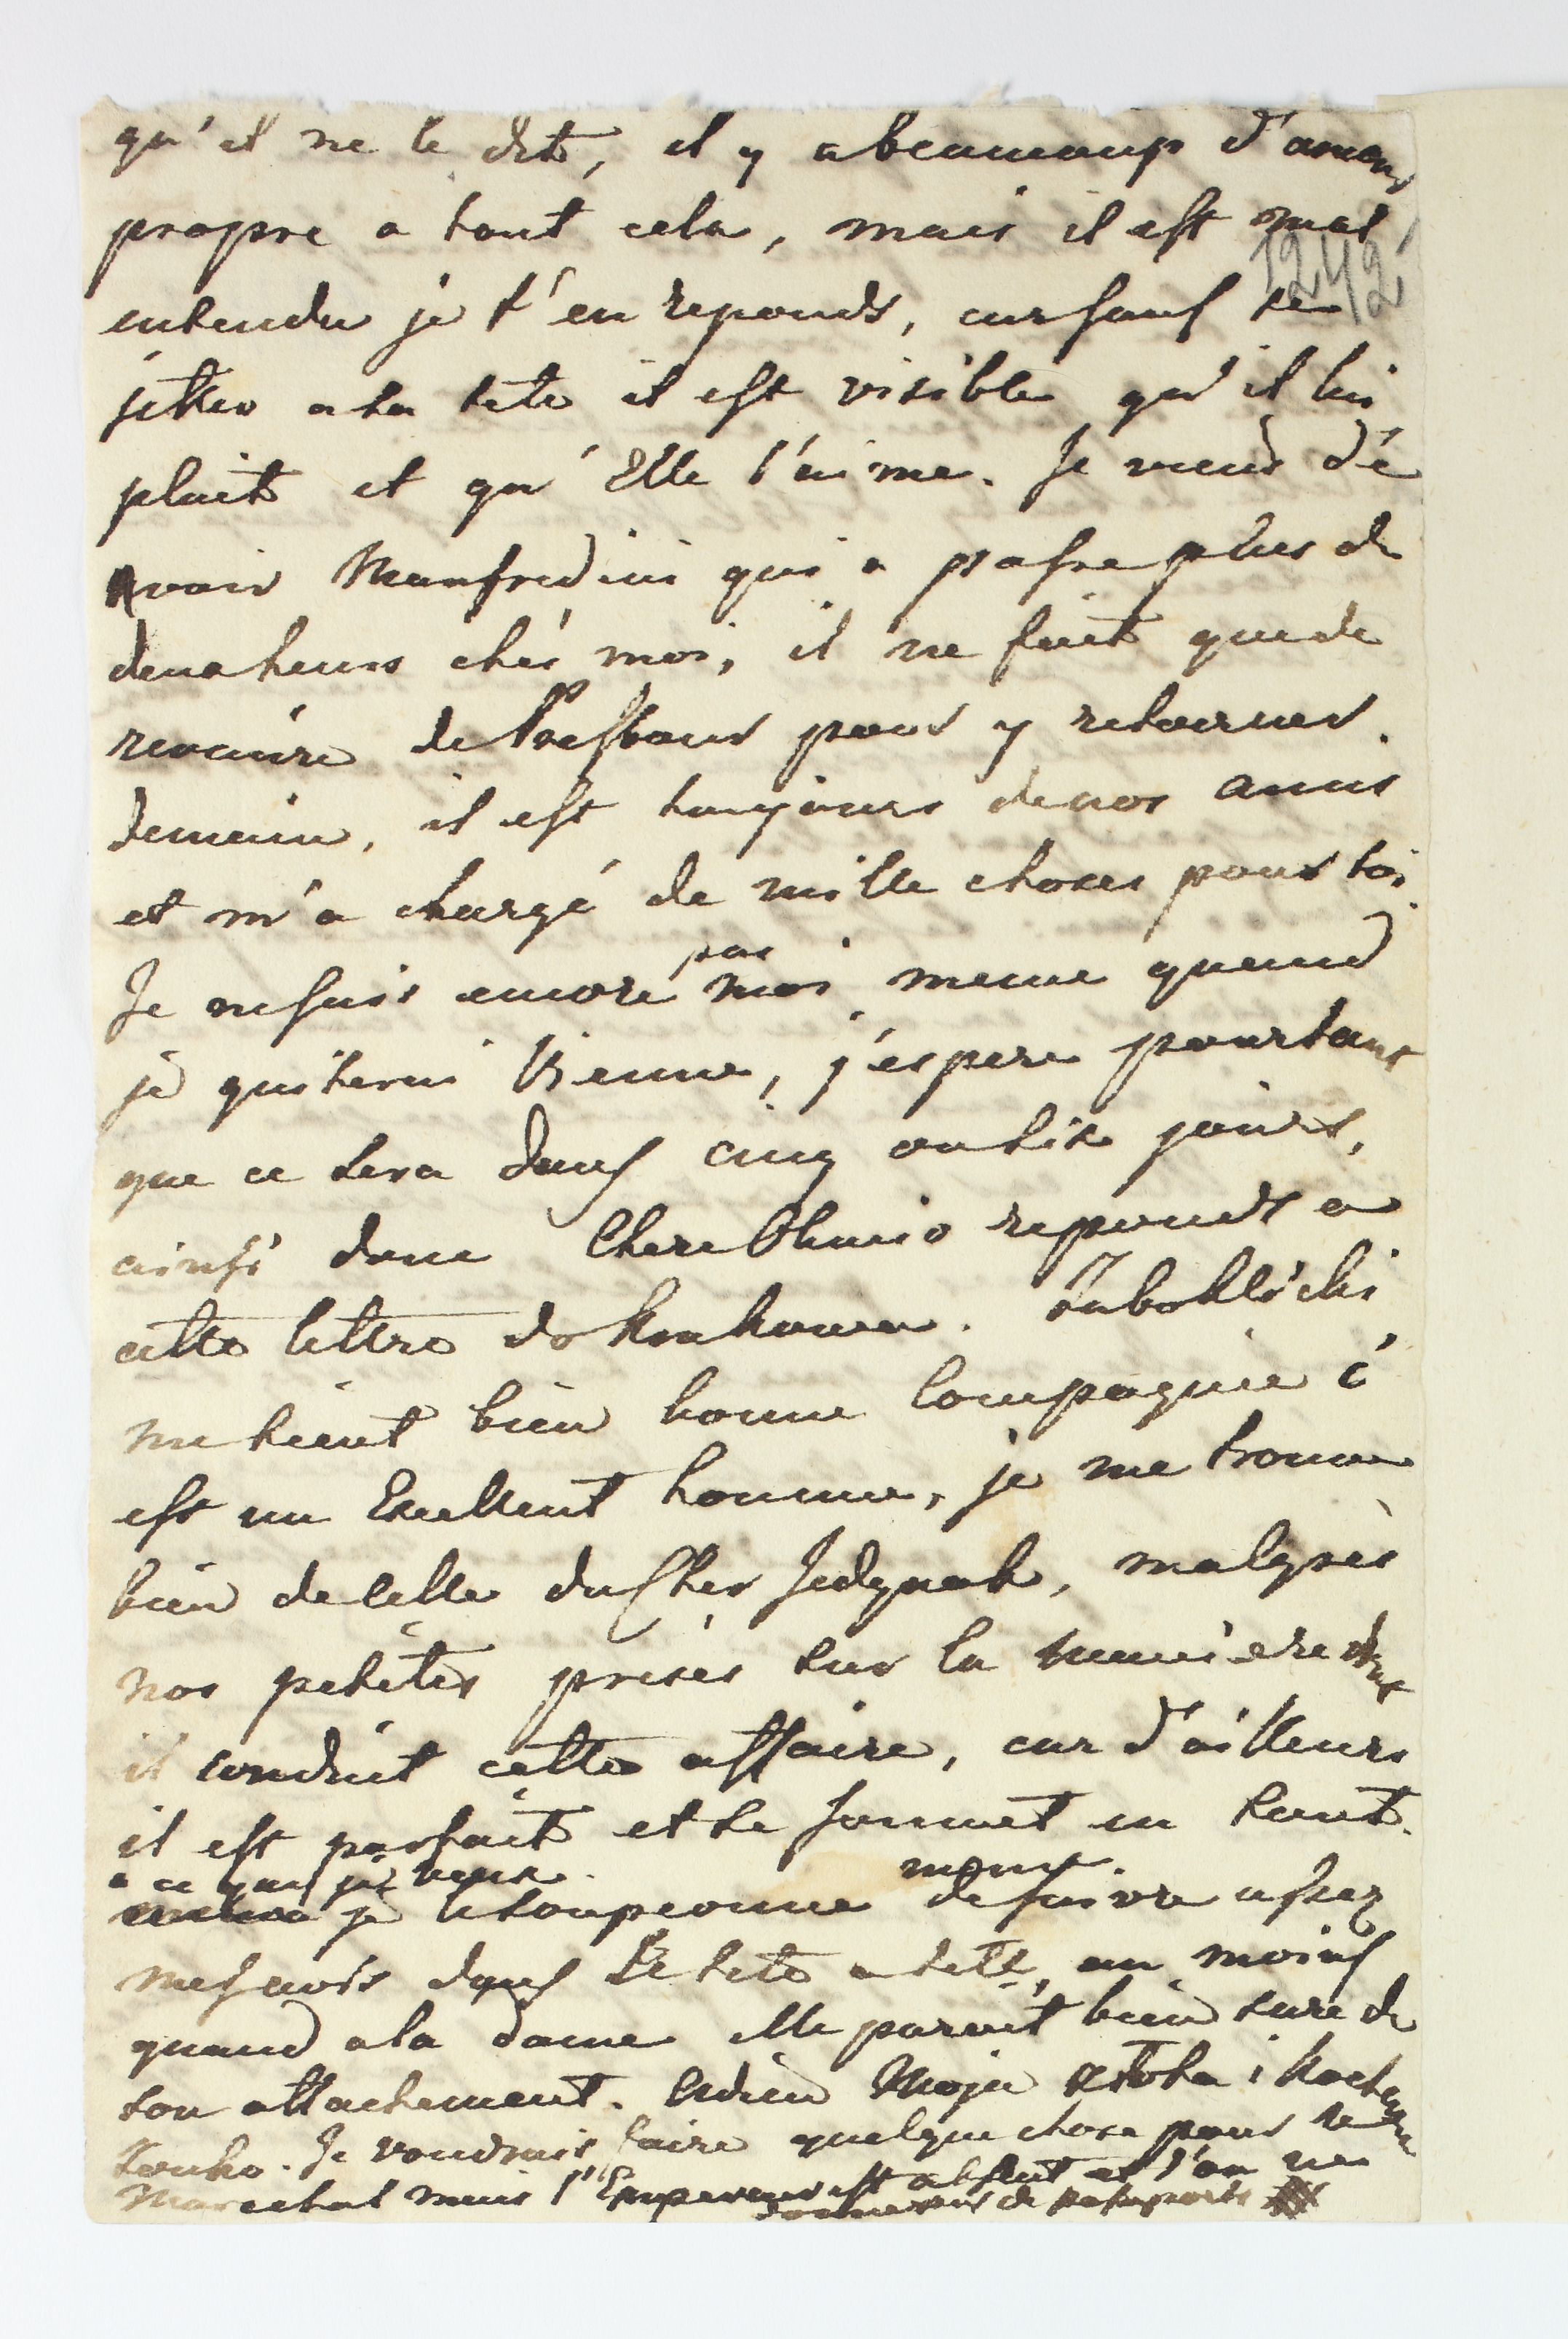 qu'il ne le dit, il y a beaucoup d'amour
propre a tout cela, mais il est mal
1242
entendu je t'en reponds, car sans se
jetter a sa tete il est visible qu'il lui
plait et qu'Elle l'aime. Je viens d'e
voir Manfredini qui a passe plus de
deux heurs chés moi, il ne fait que de
revenire de Presbour pour y retourner.
demain, il est toujours de nos amis
et m'a chargé de mille choses pour toi.
Je ne sais encore pas moi meme quand
je quiterai Vienne, j'espere pourtant
que ce sera dans cinq ou six jours,
ainsi donc Chere reponds a
cette lettre do Krakowa. Zabokl'icki
me tient bien bonne Compagnie c'
est un Exellent homme, je me trouve
bien de celle du Cher Jedynak, malgrès
nos petites prises sur la maniere dont
il conduit cette affaire, car d'ailleurs
il est parfait et se soumet en tout
a ce que je veux
je le soupconne meme de suivre assez
mes avis dans le tete a tete, au moins
quand a la dame elle paroit bien sure de
son attachement. Adieu Moja złota i kochana
Je voudrais faire quelque chose pour le
Marechal mais l'Empereur est absent et l'on ne
donne pas de passeports